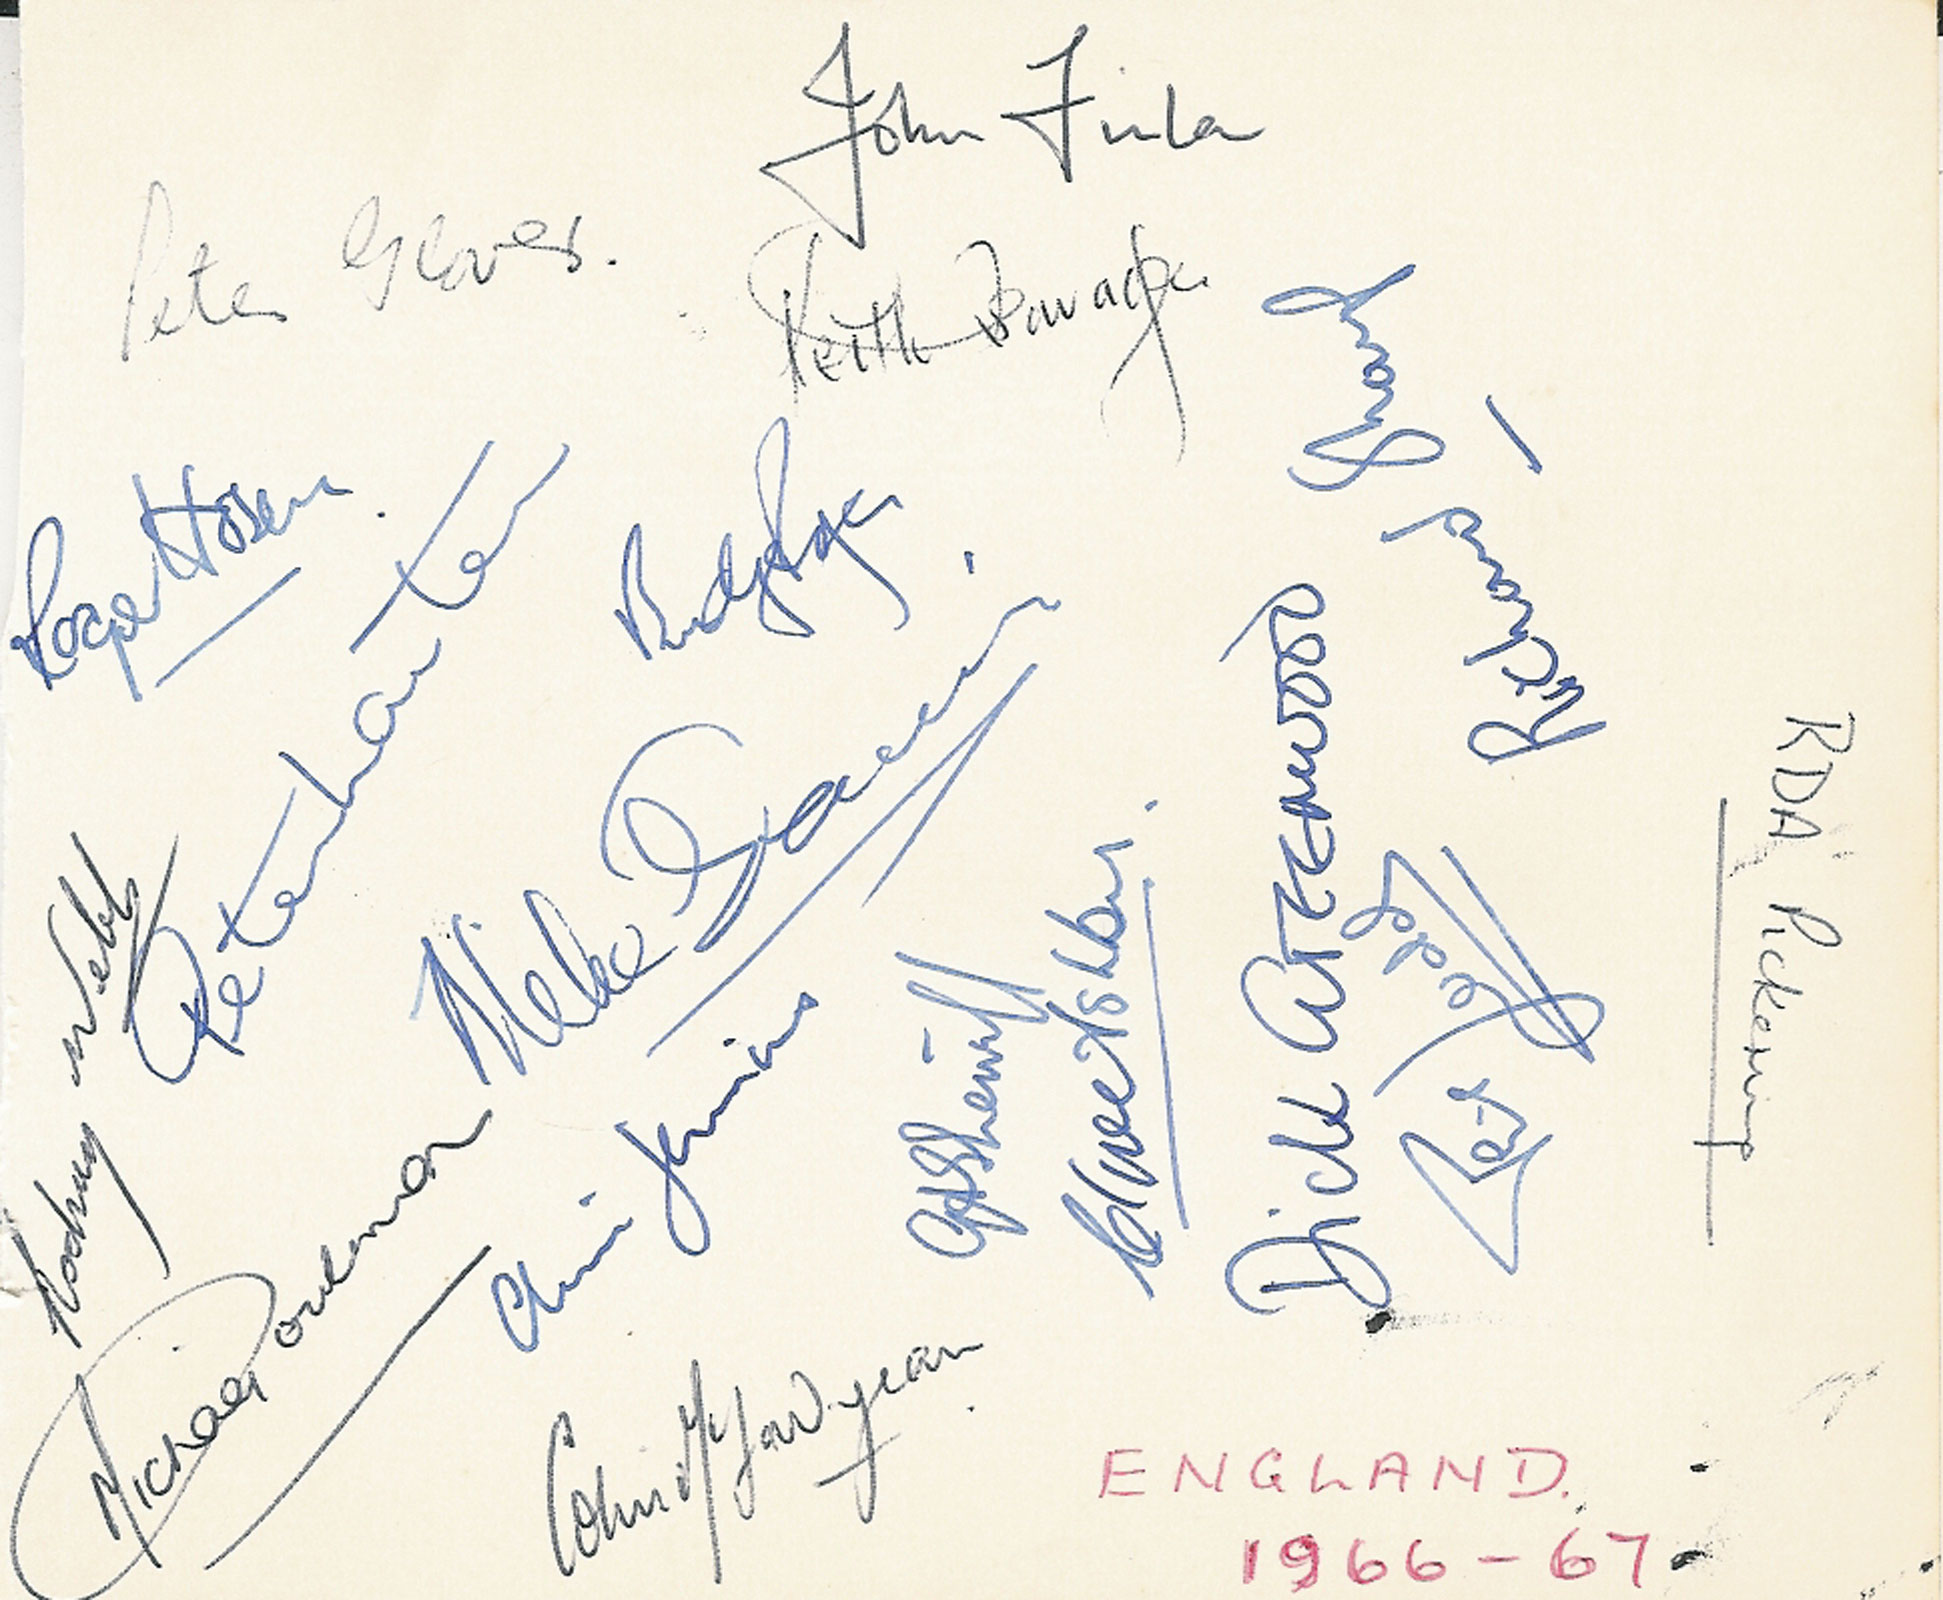 John Finlan
Peter Glover.
Keith Savage
Roger Hosen.
Budge Rogers
Peter Larter
Mike Gavin
Rodney Webb
Michael Coulman
Chris Jennins
Colin McFadyean
G A Sherriff
Clive Ashby.
Dick Greenwood
Richard Sharp
RDA Pickering
ENGLAND.
1966-67